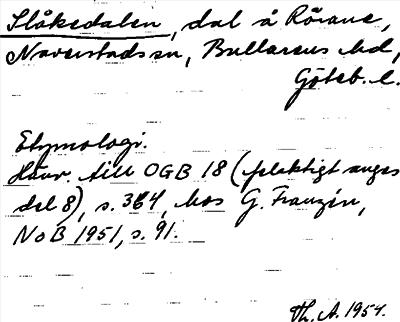 Slåkedalen, dal å Rörane,
Naverstads sn, Bullarens hd,
Göteb. l.
Etymologi.
Hänv. till OGB 18 (felaktigt anges
del 8), s. 364, hos G. Franzén,
NoB 1951, s. 91.
Th. A. 1954.